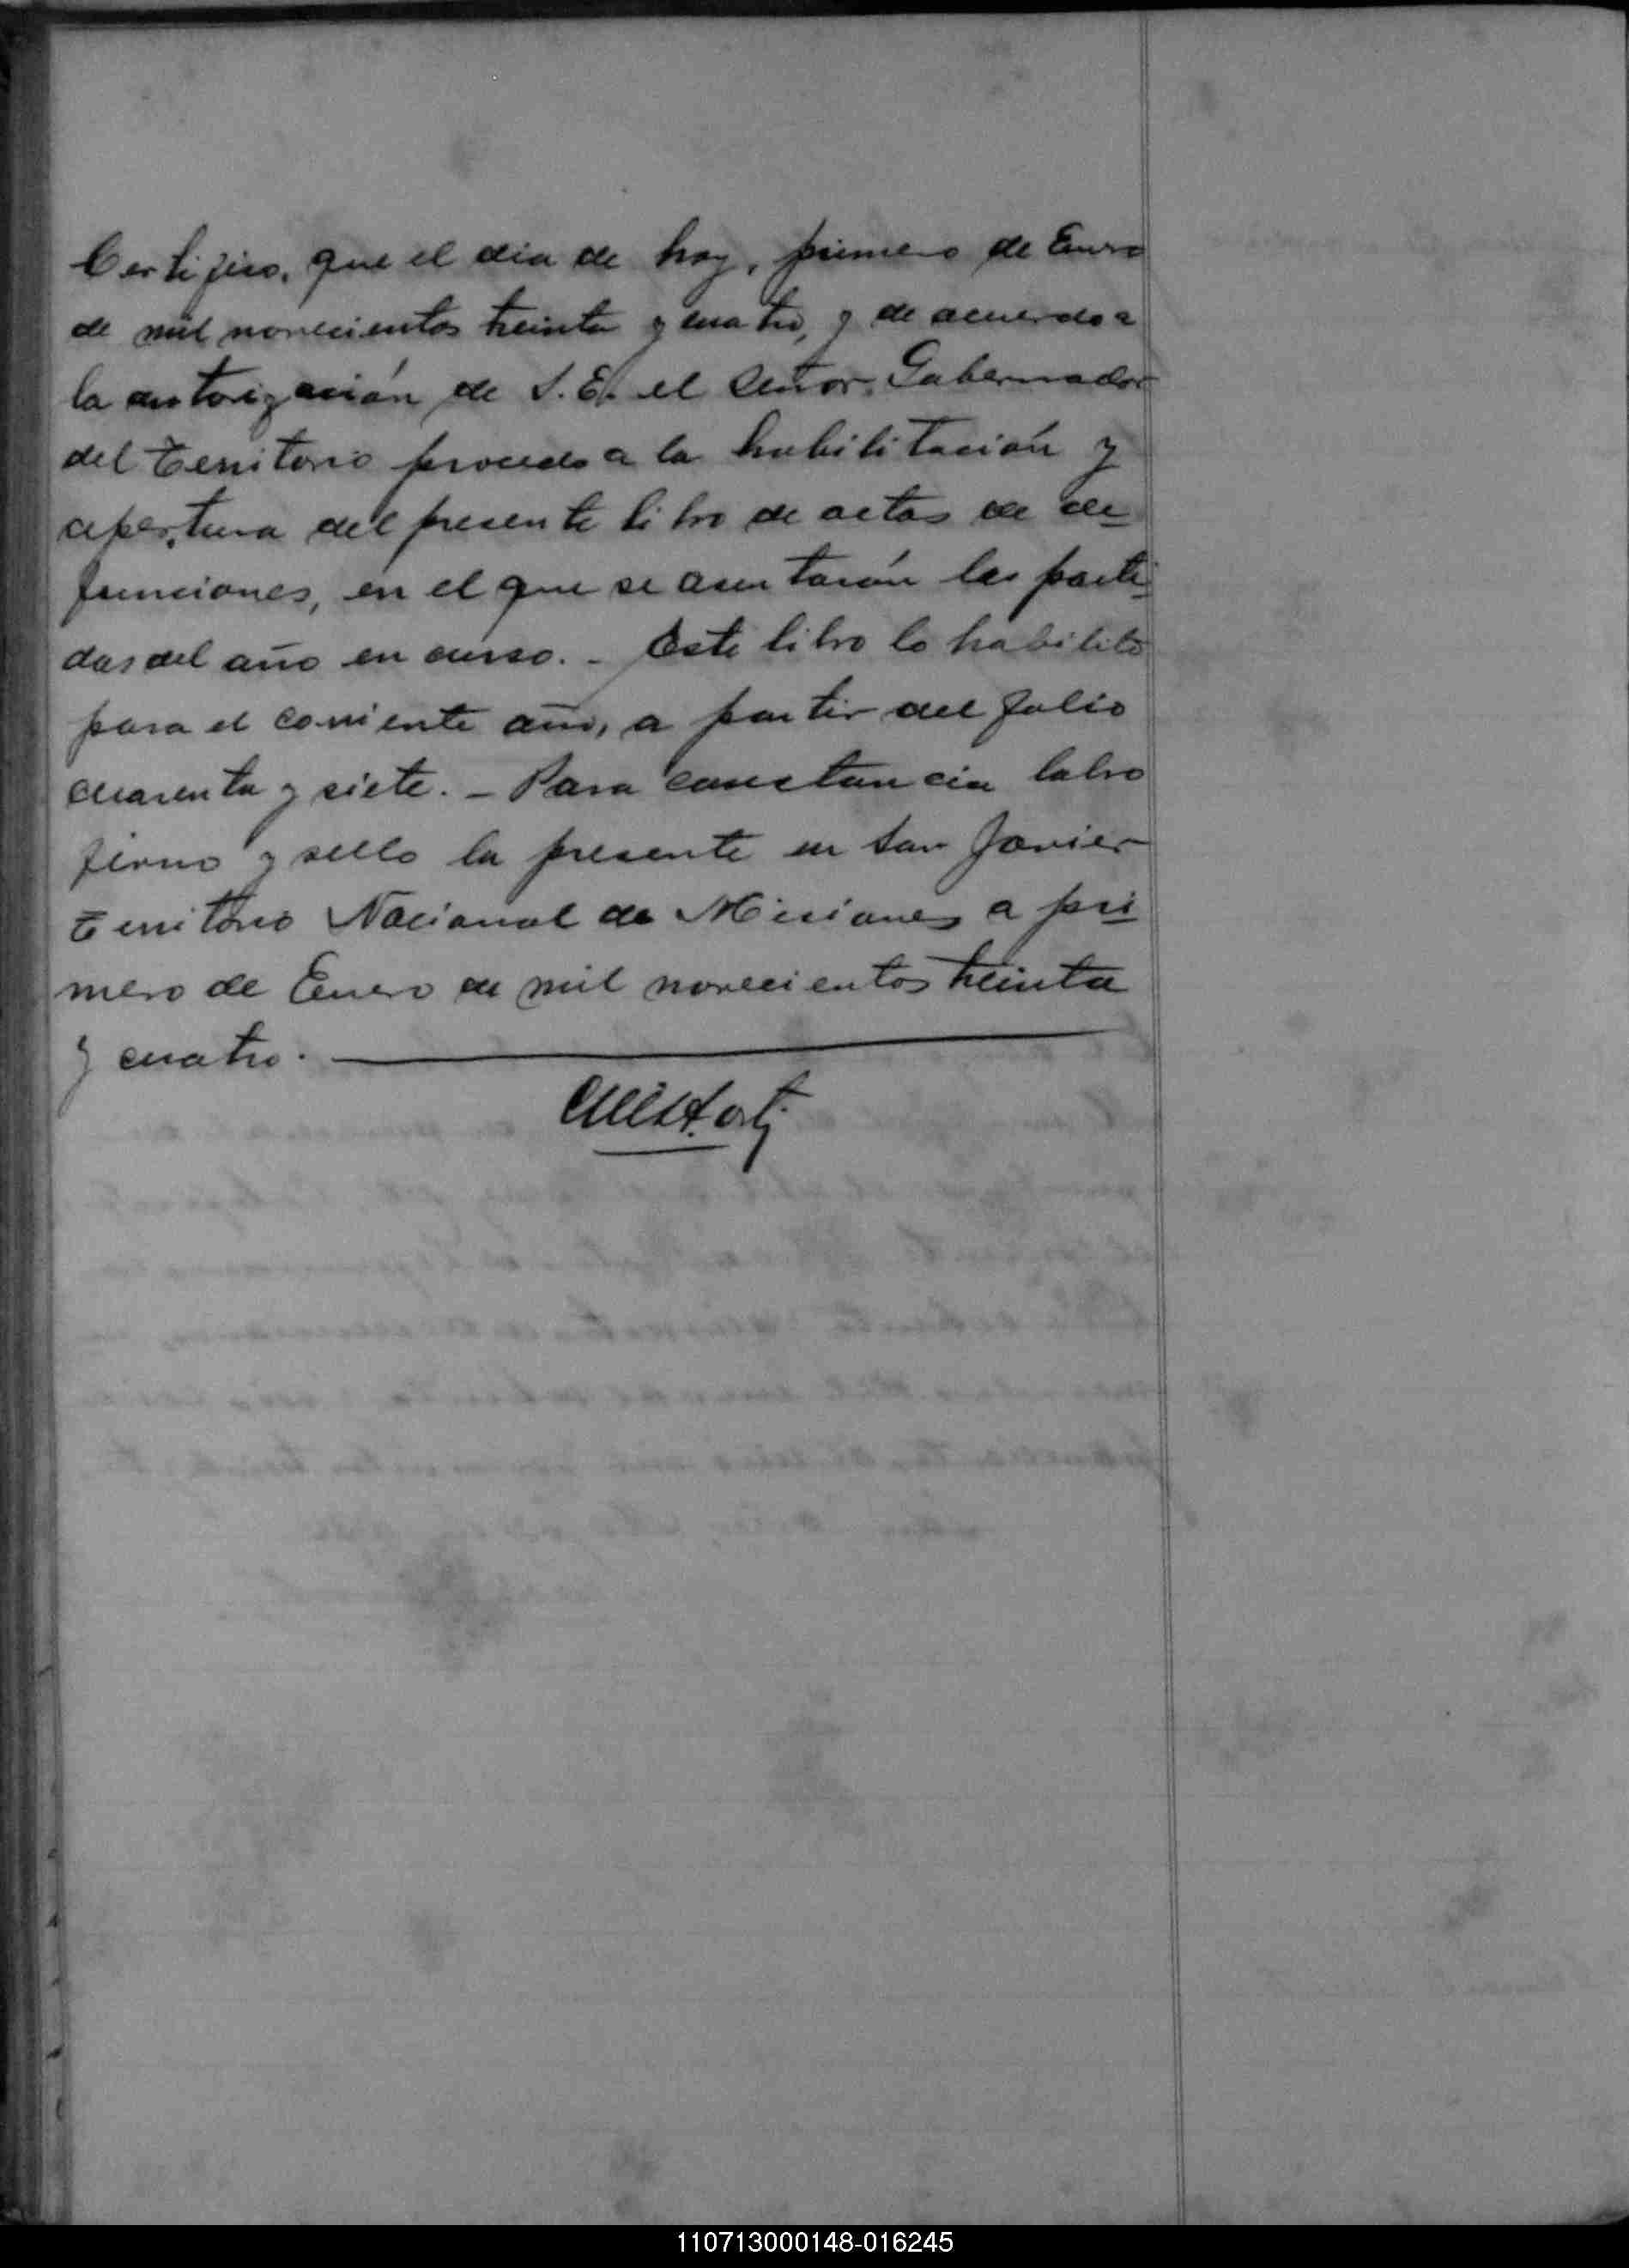 Certifico, que el dia de hoy, primero de Enero
de mil novecientos treinta y cuatro, y de acuerdo a
la autorización de S. E. el Señor Gobernador
del Territorio procedo a la habilitación y
apertura del presente libro de actas de de
funciones, en el que se asentarán las parti
das del año en curso. - Este libro lo habilito
para el corriente año, a partir del folio
cuarenta y siete. - Para constancia labro
firmo y sello la presente en San Javier
Territorio Nacional de Misiones a pri
mero de Enero de mil novecientos treinta
y cuatro.
110713000148-016245